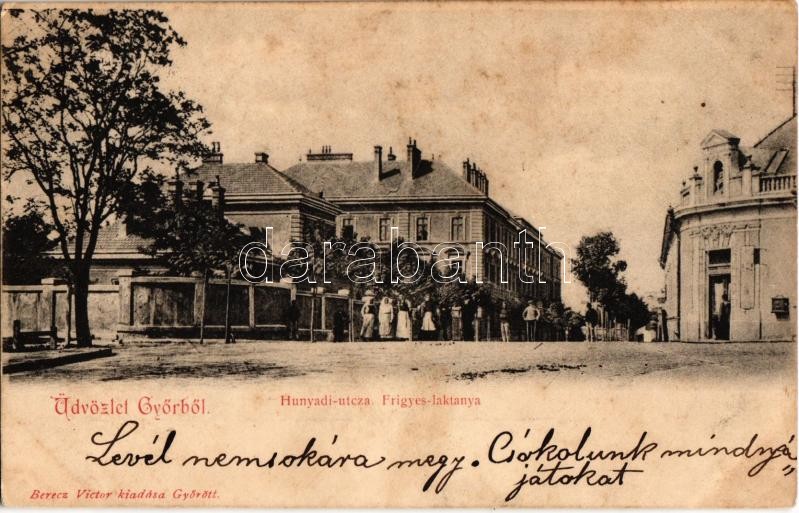 darabanth
Üdvözlet Győrből.
Hunyadi-utcza. Frigyes-laktanya
Levél nemsokára megy. Csókolunk mindnyá„
játokat
Berecz Victor kiadása Győrött.